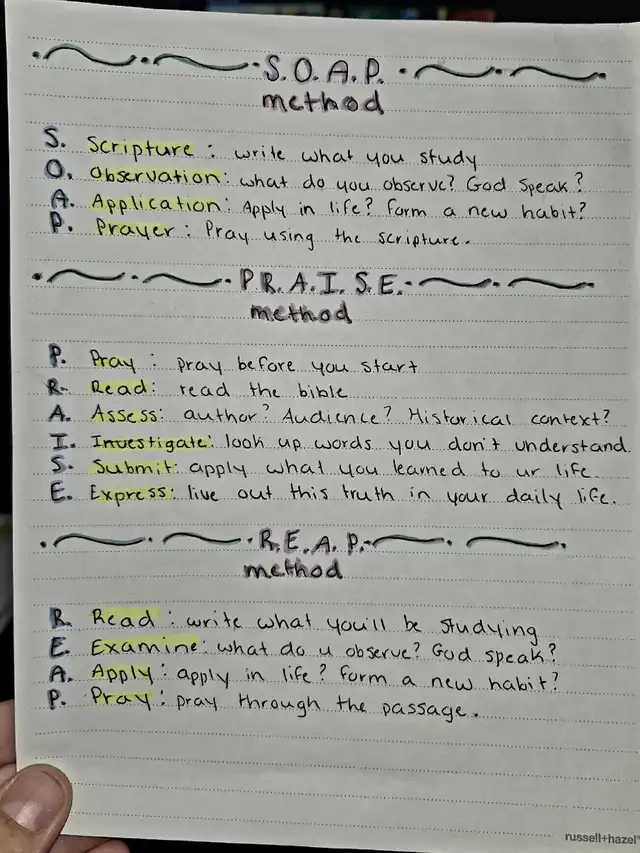 S.O.A.P.
method
S. Scripture: write what you study
O. Observation: what do you observe? God Speak?
A. Application: Apply in life? form a new habit?
P. Prayer: Pray using the scripture.
P.R.A.I.S.E.
method
P. Pray: pray before you start
R. Read: read the bible
A. Assess: author? Audience? Historical context?
I. Investigate: look up words you don't understand.
S. Submit: apply what you learned to ur life.
E. Express: live out this truth in your daily life.
R.E.A.P.
method
R. Read: write what you'll be studying
E. Examine: what do u observe? God speak?
A. Apply: apply in life? form a new habit?
P. Pray: pray through the passage.
russell+hazel